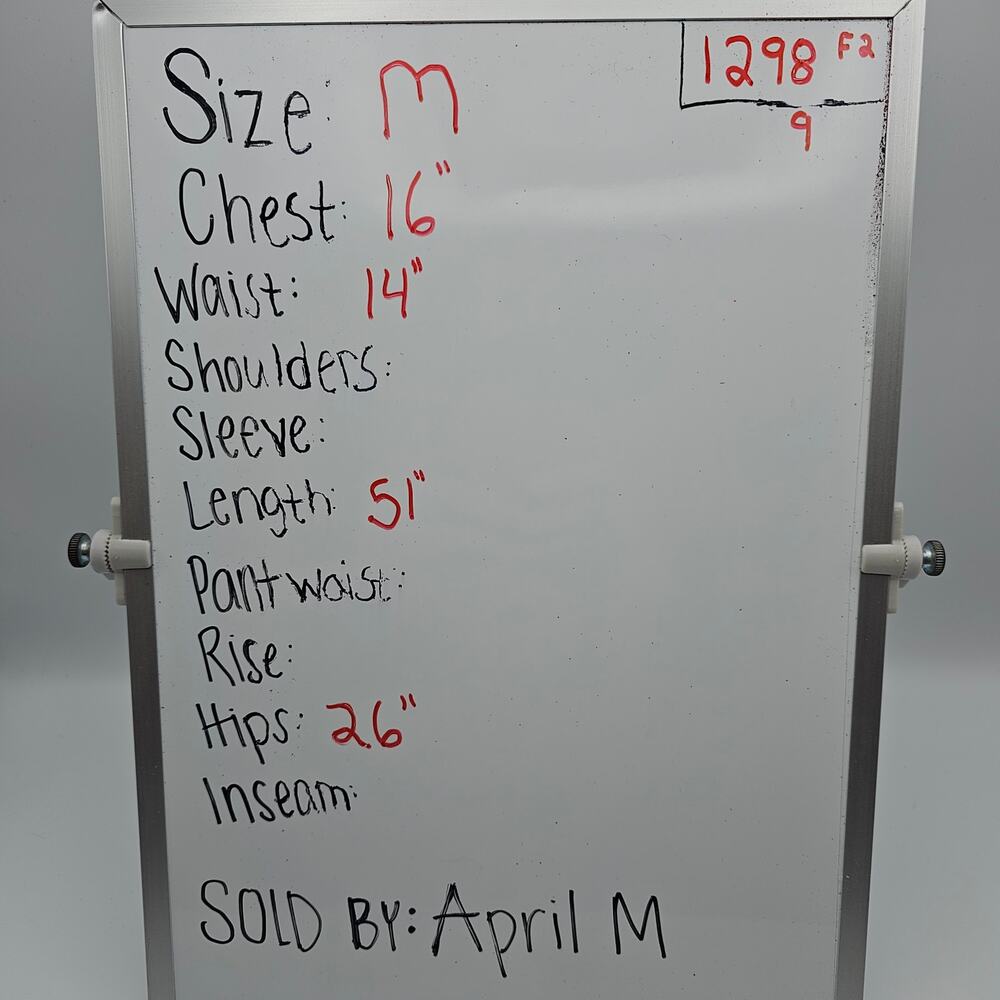 Size: M
1298 F2
9
Chest: 16"
Waist: 14"
Shoulders:
Sleeve:
Length: 51"
Pant waist:
Rise:
Hips: 26"
Inseam:
SOLD BY: April M